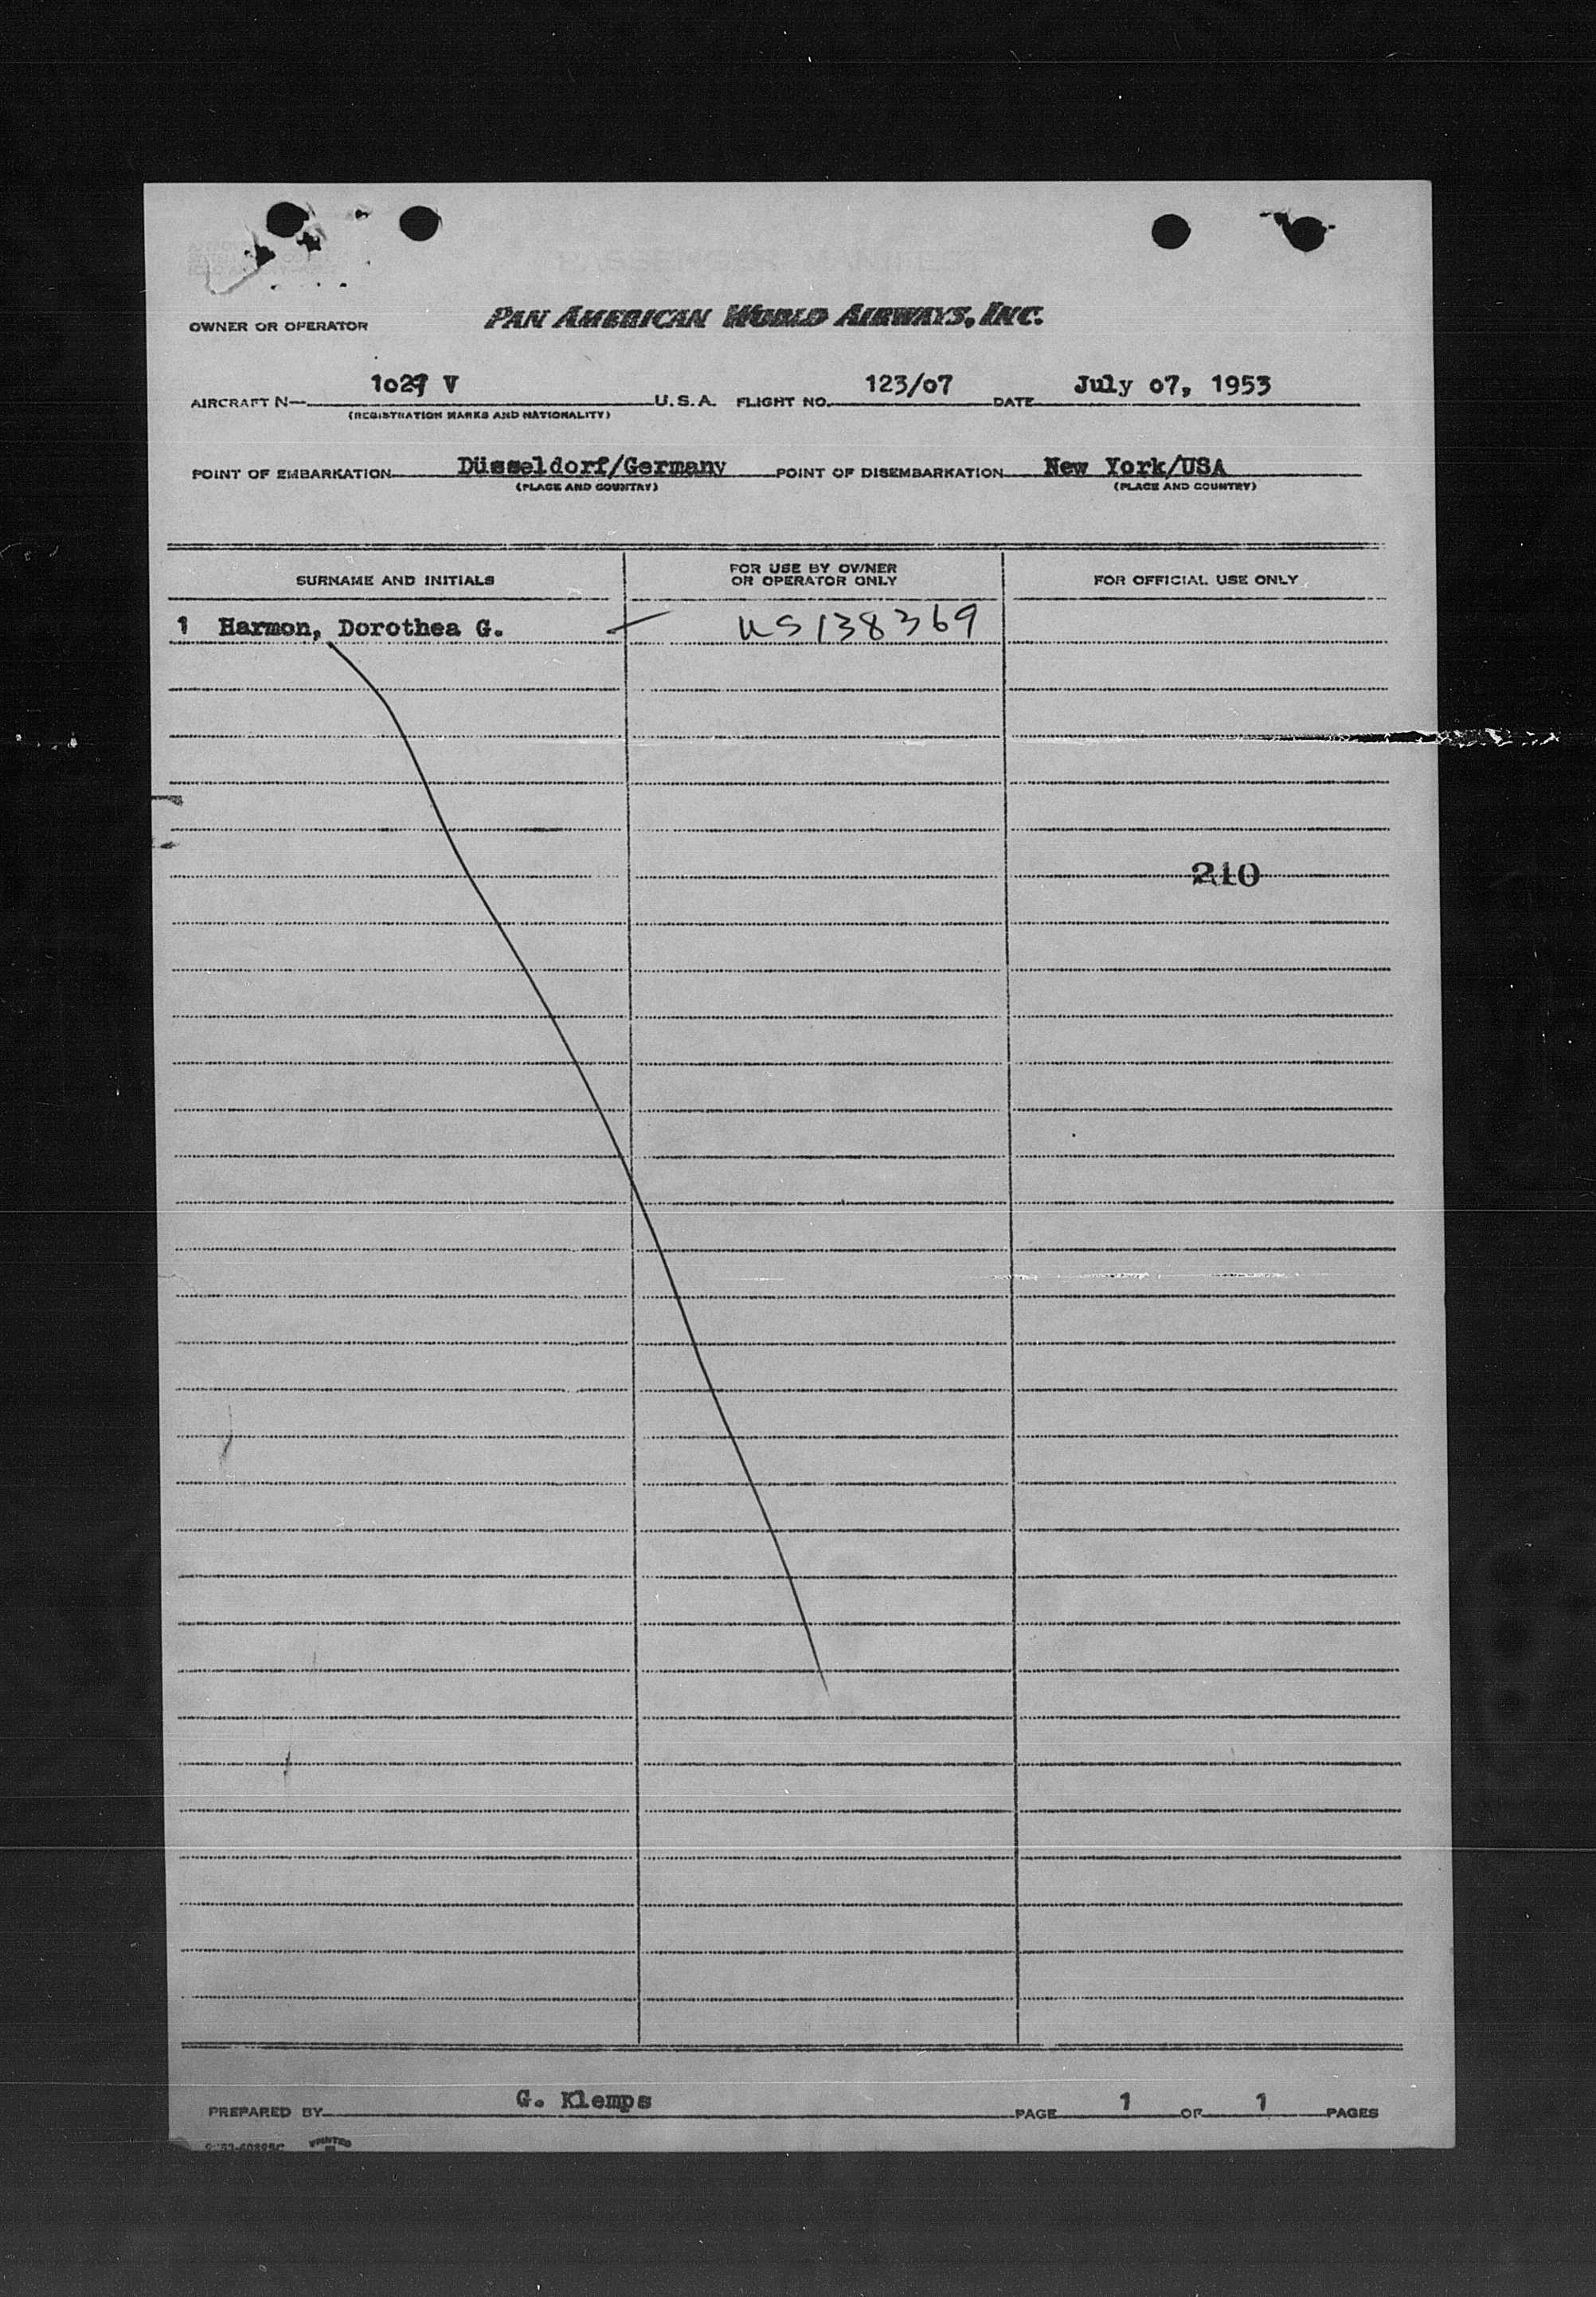 OWNER OR OPERATOR PAN AMERICAN WORLD AIRWAYS, INC.
AIRCRAFT N— V U.S.A. FLIGHT NO. 123/o7 DATE July o7, 1953
(REGISTRATION MARKS AND NATIONALITY)
POINT OF EMBARKATION Düsseldorf/Germany POINT OF DISEMBARKATION New York/USA
(PLACE AND COUNTRY) (PLACE AND COUNTRY)
SURNAME AND INITIALS
FOR USE BY OWNER
OR OPERATOR ONLY
FOR OFFICIAL USE ONLY
1 Harmon, Dorothea G. US138369
210
PREPARED BY G. Klemps PAGE 1 OF 1 PAGES
PRINTED